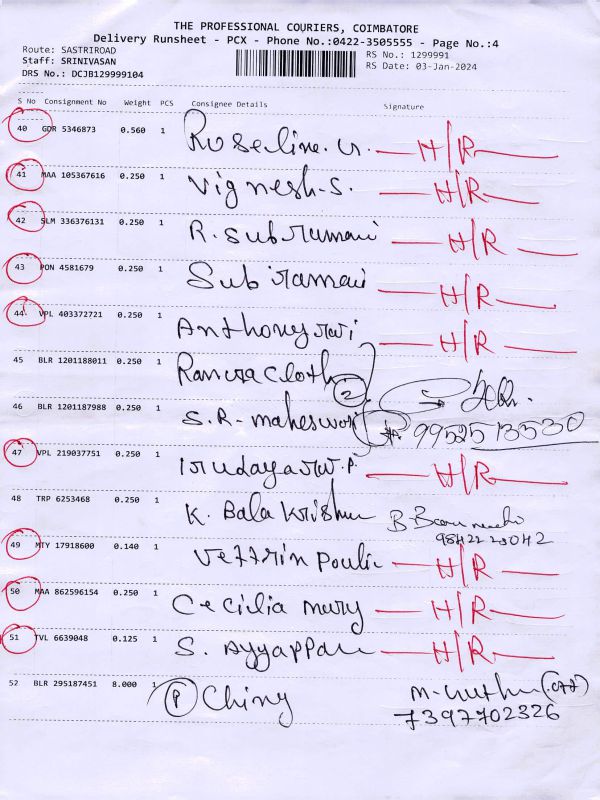 THE PROFESSIONAL COURIERS, COIMBATORE
Delivery Runsheet - PCX - Phone No.:0422-3505555 - Page No.:4
Route: SASTRIROAD RS No.: 1299991
Staff: SRINIVASAN RS Date: 03-Jan-2024
DRS No.: DCJB129999104
S No Consignment No Weight PCS Consignee Details Signature
40 GDR 5346873 0.560 1 Roseline. G. H/R
41 MAA 105367616 0.250 1 Vignesh-S. H/R
42 SLM 336376131 0.250 1 R. Subramani H/R
43 PON 4581679 0.250 1 Subiramani H/R
44 VPL 403372721 0.250 1 Anthonyravi H/R
45 BLR 1201188011 0.250 1 Cloth 2
46 BLR 1201187988 0.250 1 S.R- maheswari 9952513530
47 VPL 219037751 0.250 1 Irudayaraj. P. H/R
48 TRP 6253468 0.250 1 K. Bala Krishnan
49 MTY 17918600 0.140 1 Vettrin Poulic H/R
50 MAA 862596154 0.250 1 Cecilia mary H/R
51 TVL 6639048 0.125 1 S. Ayyappan H/R
52 BLR 295187451 8.000 1 P Ching M. Muthu
7397702326